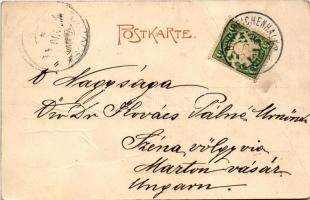 POSTKARTE.
ICHENHALL
Ő Nagysága
Dr Kovács Pálné Urnőnek
Széna völgy via
Marton vásár
Ungarn.